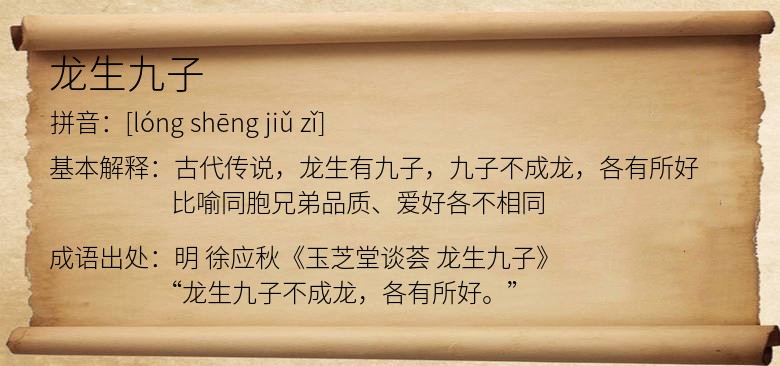 龙生九子
拼音：[lóng shēng jiǔ zǐ]
基本解释：古代传说，龙生有九子，九子不成龙，各有所好
比喻同胞兄弟品质、爱好各不相同
成语出处：明 徐应秋《玉芝堂谈荟 龙生九子》
“龙生九子不成龙，各有所好。”